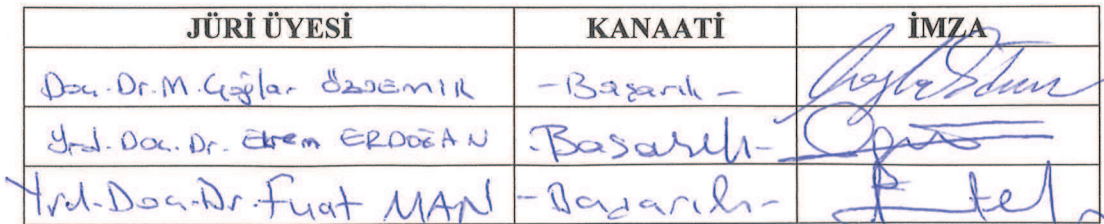 JÜRİ ÜYESİ KANAATİ İMZA
Doç. Dr. M. Çağlar ÖZDEMİR -Başarılı-
Yrd. Doç. Dr. Ekrem ERDOĞAN -Başarılı-
Yrd. Doç. Dr. Fuat MAN -Başarılı-